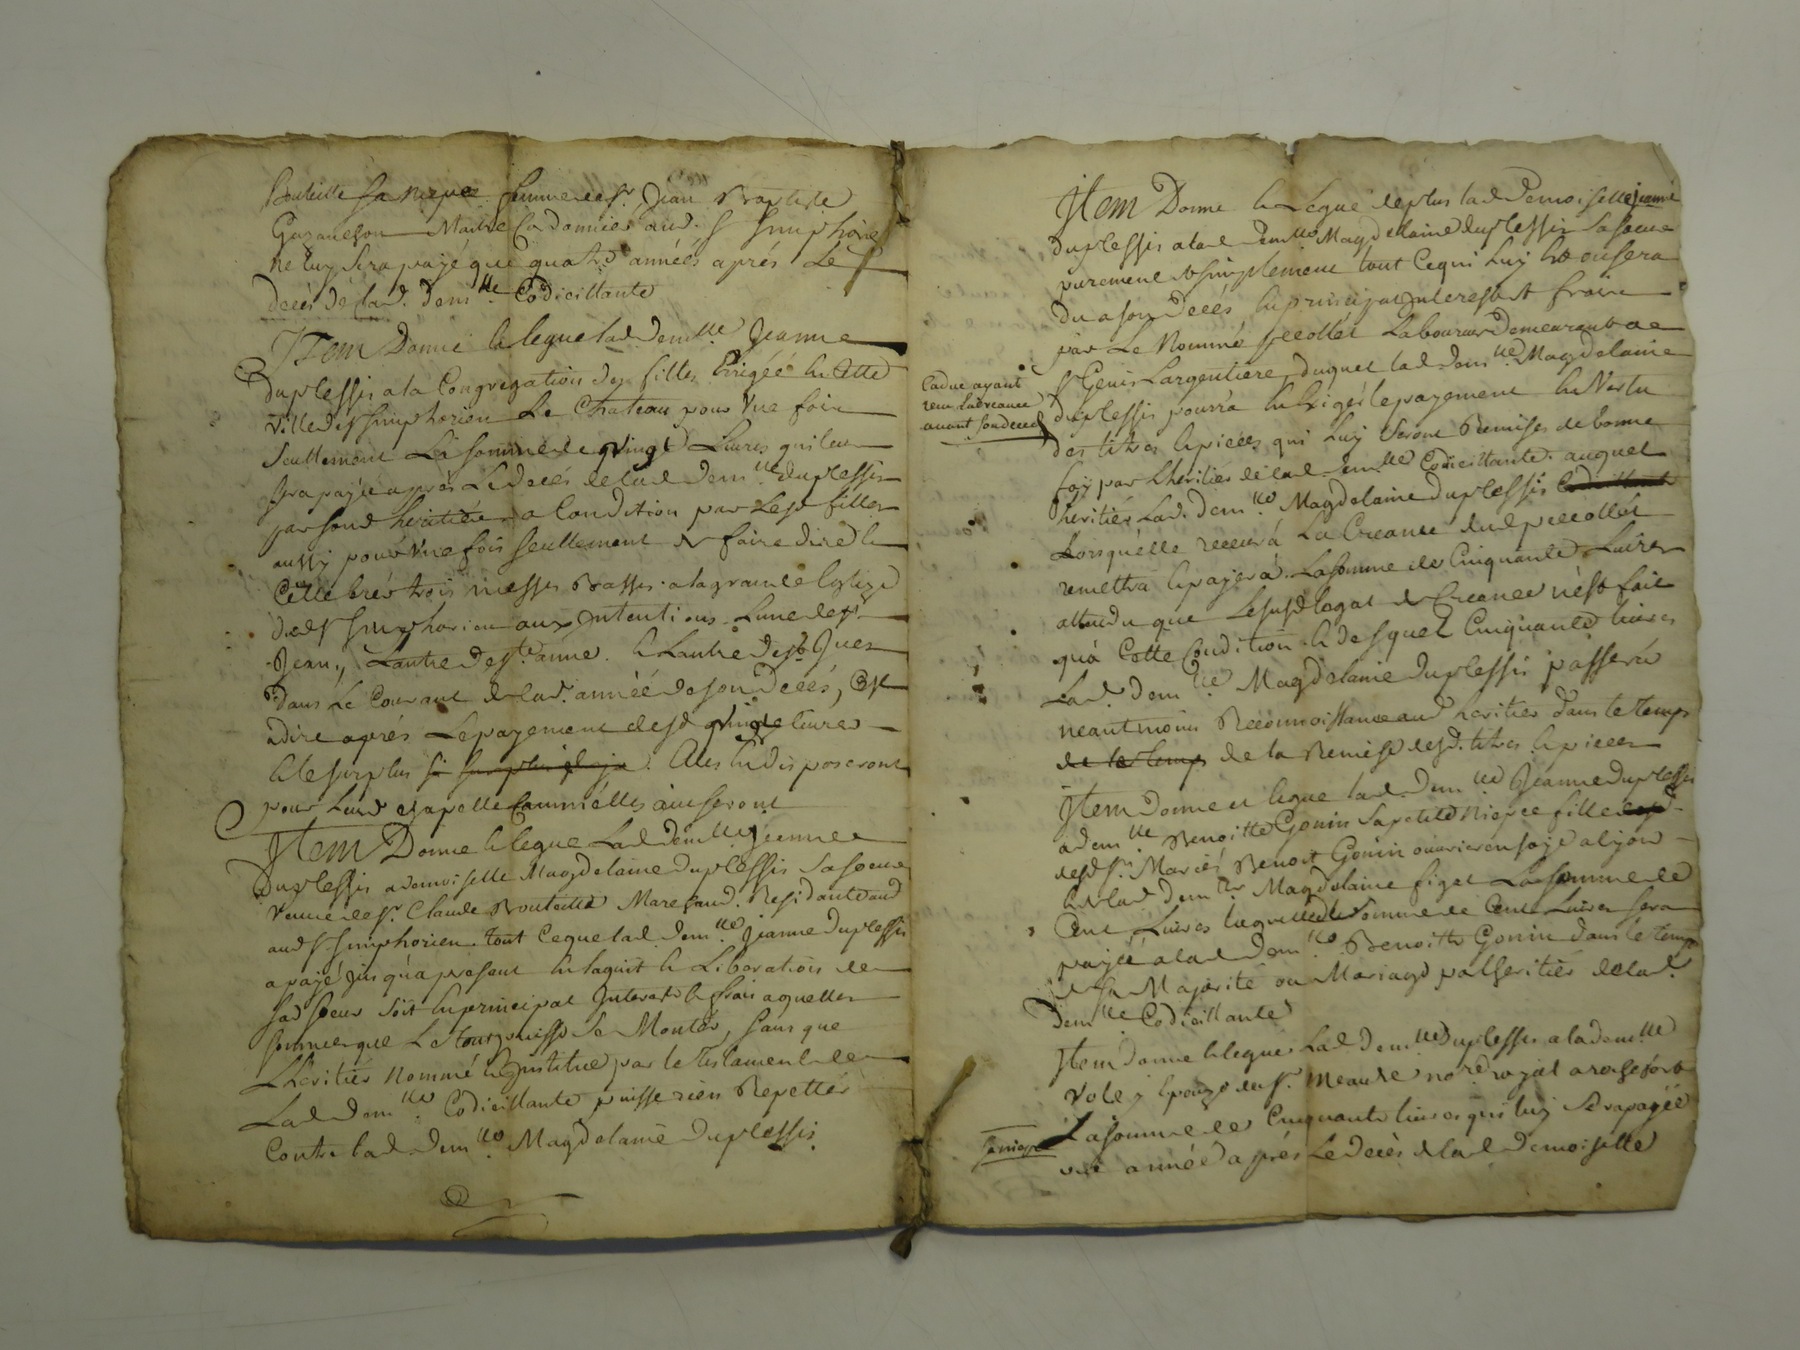 Bouteille sa niepce femme de sr. Jean Baptiste
Gazanchon Maitre Cordonnier aud. St Simphorien
ne luy sera payé que quatre années aprés Le
decés de lad. demlle Codicillante
Item Donne & legue lad demlle Jeanne
Duplessis a la Congregation des filles Erigéé en Cette
ville de St Simphorien Le Chateau pour Une fois
Seullement La somme de Vingt Livres qui leur
sera payée aprés Le decés de lad demlle duplessis
par sond heritier a Condition par Lesd filles
aussy pour Une fois seullement de faire dire &
Cellebrer trois messes Basses a la grande Eglize
dud St Simphorien aux Intentions L'une de St
Jean, L'autre de Ste anne & L'autre de St Yves
dans Le Courant de lad. année de son decés, C'est
a dire aprés Le payement desd Vingt livres
& le surplus Elles En disposeront
pour Leur chapelle Comme elles aviseront
Item Donne & legue Lad demlle Jeanne
Duplessis a demoiselle Magdelaine duplessis Sa soeur
Veuve de Sr. Claude Bouteille Marchand. Residante aud
aud St Simphorien tout Ce que lad. demlle Jeanne Duplessis
a payé jusqu'a present En l'aquit & Liberation de
sad soeur soit En principal Interests & frais a quelles
sommes que Le tout puisse Se Monter, sans que
L'heritier nommé & Institué par le testament de
Lad demlle Codicillante puisse rien Repetter
Contre lad demlle Magdelaine Duplessis.
Item Donne & Legue de plus lad Demoiselle Jeanne
duplessis a lad demlle Magdelaine duplessis Sa soeur
purement & simplement tout Ce qui Luy sera
du a son Decés En principal Interests & frais
par Le Nommé pccollet Laboureur demeurant a
St Genis Largentiere, duquel lad demlle Magdelaine
duplessis pourra En Exiger le payement En Vertu
des titres & pieces qui Luy Seront Remises de bonne
foy par L'heritier de lad demlle Codicillante. auquel
heritier Lad. demlle Magdelaine duplessis Codicillante
Lorsqu'elle recevra La Creance dud pccollet
remettra & payera La somme de Cinquante Livres
attendu que Le susd legat de Creance n'est fait
qu'a Cette Condition & desquels Cinquante livres
Lad. demlle Magdelaine Duplessis passera
neantmoins Reconnoissance aud heritier dans le temps
de le temps de la Remise desd. titres & pieces
Item donne et legue lad. demlle Jeanne duplessis
a demlle Benoitte Gonin Sa petite Niepce fille
desd Sr. Mariés Benoit Gonin ouvrier en soye a Lyon
& de lad demlle Magdelaine figet La somme de
Cent Livres laquelle somme de Cent Livres sera
payéé a lad demlle Benoitte Gonin dans le temps
de sa Majorité ou Mariage par L'heritier de lad
demlle Codicillante
Item donne & legue Lad demlle duplessis a la demlle
Voley Epouze du Sr. Meaudre nore royal
La somme de Cinquante livres qui luy Sera payéé
une année aprés Le decés de lad demoiselle
Caduc ayant
receu lad creance
avant son deced
sa niepce